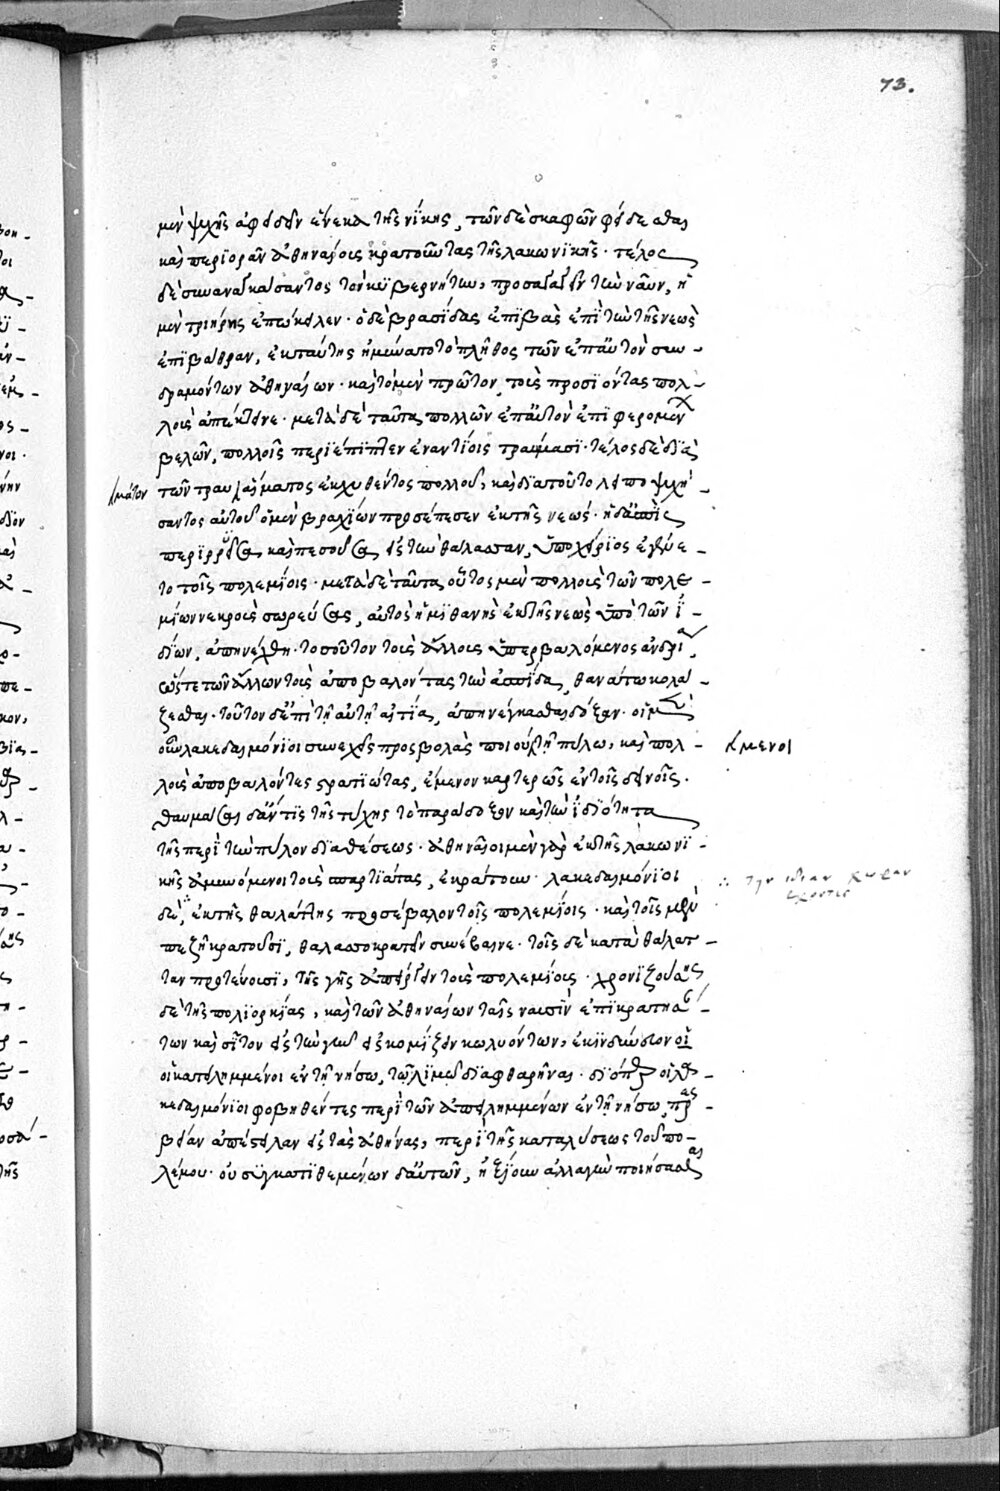 73.
μὲν ψυχῆς ἀφειδεῖν ἕνεκα τῆς νίκης, τῶν δὲ σκαφῶν φείδεσθαι
καὶ περιορᾶν ἀθηναίοις κρατοῦντας τῆς λακωνικῆς. τέλος
δὲ συναναγκάσαντος τὸν κυβερνήτην, προσαγαγεῖν τὴν ναῦν, ἡ
μὲν τριήρης ἐπώκειλεν. ὁ δὲ βρασίδας ἐπιβὰς ἐπὶ τὴν τῆς νεὼς
ἐπιβάθραν, ἐκ ταύτης ἠμύνατο τὸ πλῆθος τῶν ἐπ' αὐτὸν συν-
δραμόντων ἀθηναίων. καὶ τὸ μὲν πρῶτον τοὺς προσιόντας πολ-
λοὺς ἀπέκτεινε. μετὰ δὲ ταῦτα πολλῶν ἐπ' αὐτὸν ἐπιφερομένων
βελῶν, πολλοῖς περιέπιπτεν ἐναντίοις τραύμασι. τέλος δὲ διὰ
τῶν τραυμάτων αἵματος ἐκχυθέντος πολλοῦ, καὶ διὰ τοῦτο λειποψυχή-
μάτων
σαντος αὐτοῦ ὁ μὲν βραχίων προσέπεσεν ἐκ τῆς νεώς. ἡ δ' ἀσπὶς
περιρρυεῖσα καὶ πεσοῦσα εἰς τὴν θάλασσαν, ὑποχείριος ἐγένε-
το τοῖς πολεμίοις. μετὰ δὲ ταῦτα οὗτος μὲν πολλοὺς τῶν πολε-
μίων νεκροὺς σωρεύσας, αὐτὸς ἡμιθανὴς ἐκ τῆς νεὼς ὑπὸ τῶν ἰ-
δίων, ἀπηνέχθη. τοσοῦτον τοὺς ἄλλους ὑπερβαλόμενος ἀνδρία,
ὥστε τῶν ἄλλων τοὺς ἀποβαλόντας τὴν ἀσπίδα, θανάτω κολά-
ζεσθαι. τοῦτον δ' ἐπὶ τῇ αὐτῇ αἰτία, ἀπηνέγκασθαι δόξαν. οἱ μὲν
οὖν λακεδαιμόνιοι συνεχεῖς προσβολὰς ποιούμενοι τῇ πύλω, καὶ πολ-
μενοι
λοὺς ἀποβαλόντες στρατιώτας, ἔμενον καρτερῶς ἐν τοῖς δεινοῖς.
θαυμάσαι δ' ἄν τις τῆς τύχης τὸ παράδοξον καὶ τὴν ἰδιότητα
τῆς περὶ τὴν πύλον διαθέσεως. ἀθηναῖοι μὲν γὰρ ἐκ τῆς λακωνι-
κῆς ἀμυνόμενοι τοὺς σπαρτιάτας, ἐκράτουν. λακεδαιμόνιοι
τὴν ἰδίαν χώραν
ἔχοντες
δὲ, ἐκ τῆς θαλάττης προσέβαλον τοῖς πολεμίοις. καὶ τοῖς μὲν
πεζῇ κρατοῦσι, θαλασσοκρατεῖν συνέβαινε. τοῖς δὲ κατὰ θάλατ-
ταν πρωτεύουσι, τῆς γῆς ἀπείργειν τοὺς πολεμίους. χρονιζούσης
δὲ τῆς πολιορκίας, καὶ τῶν ἀθηναίων ταῖς ναυσὶν ἐπικρατησά-
των καὶ σῖτον εἰς τὴν γῆν εἰσκομίζειν κωλυόντων, ἐκινδύνευον οἱ
οἱ κατειλημμένοι ἐν τῇ νήσω, τῷ λιμῷ διαφθαρῆναι. διόπερ οἱ λα-
κεδαιμόνιοι φοβηθέντες περὶ τῶν ἀπειλημμένων ἐν τῇ νήσω, πρεσ-
βείαν ἀπέστειλαν εἰς τὰς ἀθήνας, περὶ τῆς καταλύσεως τοῦ πο-
λέμου. οὐ συγκατιθεμένων δ' αὐτῶν, ἠξίουν ἀλλαγὴν ποιήσασθαι